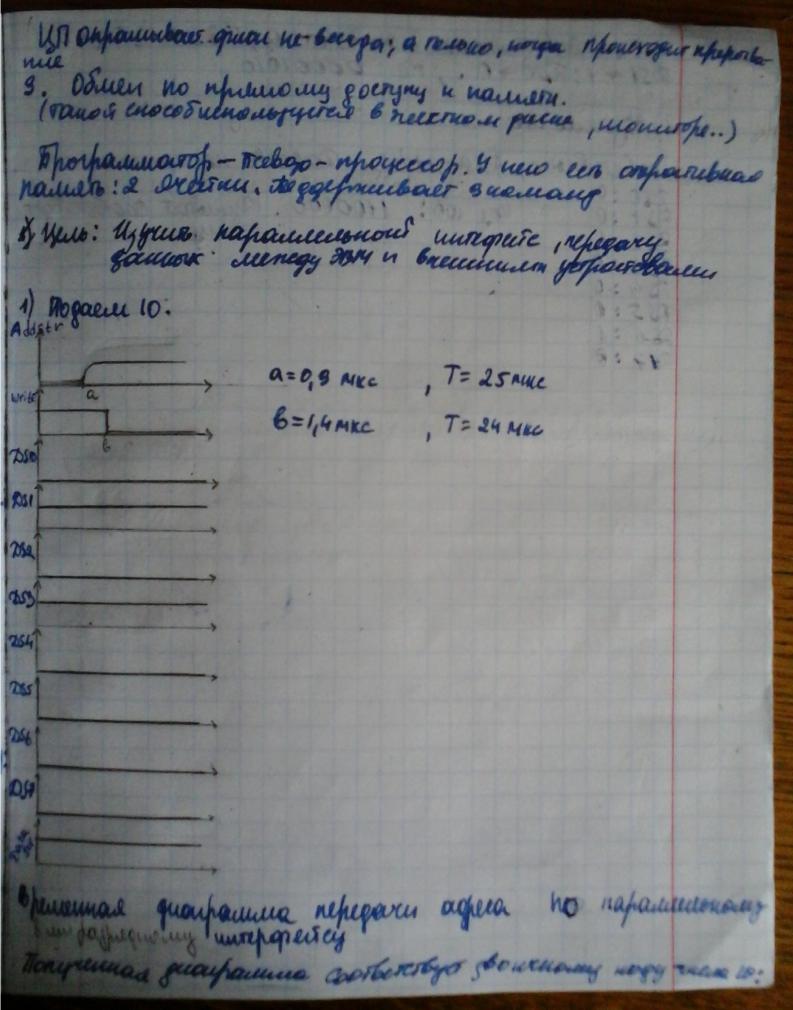 ЦП опрашивает флаг не всегда, а только, когда происходит прерыва-
ние
3. Обмен по прямому доступу к памяти.
(такой способ используется в жестком диске, мониторе..)
Программатор – псевдо-процессор. У него есть оперативная
память: 2 ячейки. Поддерживает 3 команд
Цель: Изучить параллельный интерфейс, передачу
данных между ЭВМ и внешними устройствами
1) Подаем 10:
Addstr
a
a=0,9 мкс , T=25 мкс
write
в
в=1,4 мкс , T=24 мкс
DS0
DS1
DS2
DS3
DS4
DS5
DS6
DS7
Временная диаграмма передачи адреса по параллельному
интерфейсу
Полученная диаграмма соответствует двоичному коду числа 10: